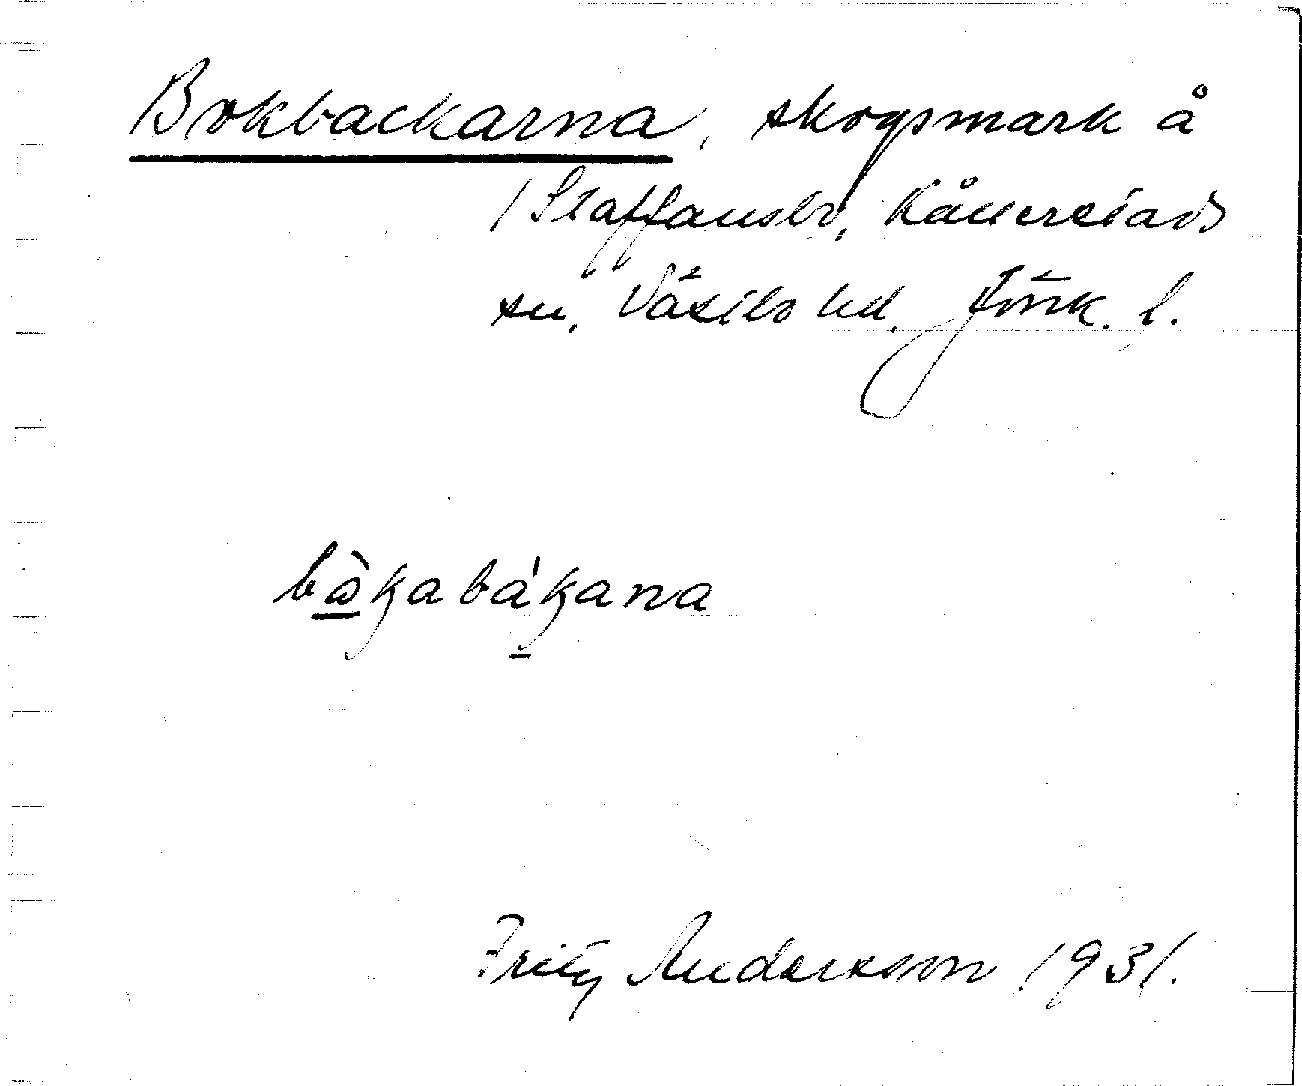 Bokbackarna, skogsmark å
1 Staffansbo, Kållerstads
sn, Västbo hd. Jönk. l.
bàkabákana
Fritz Andersson 1931.